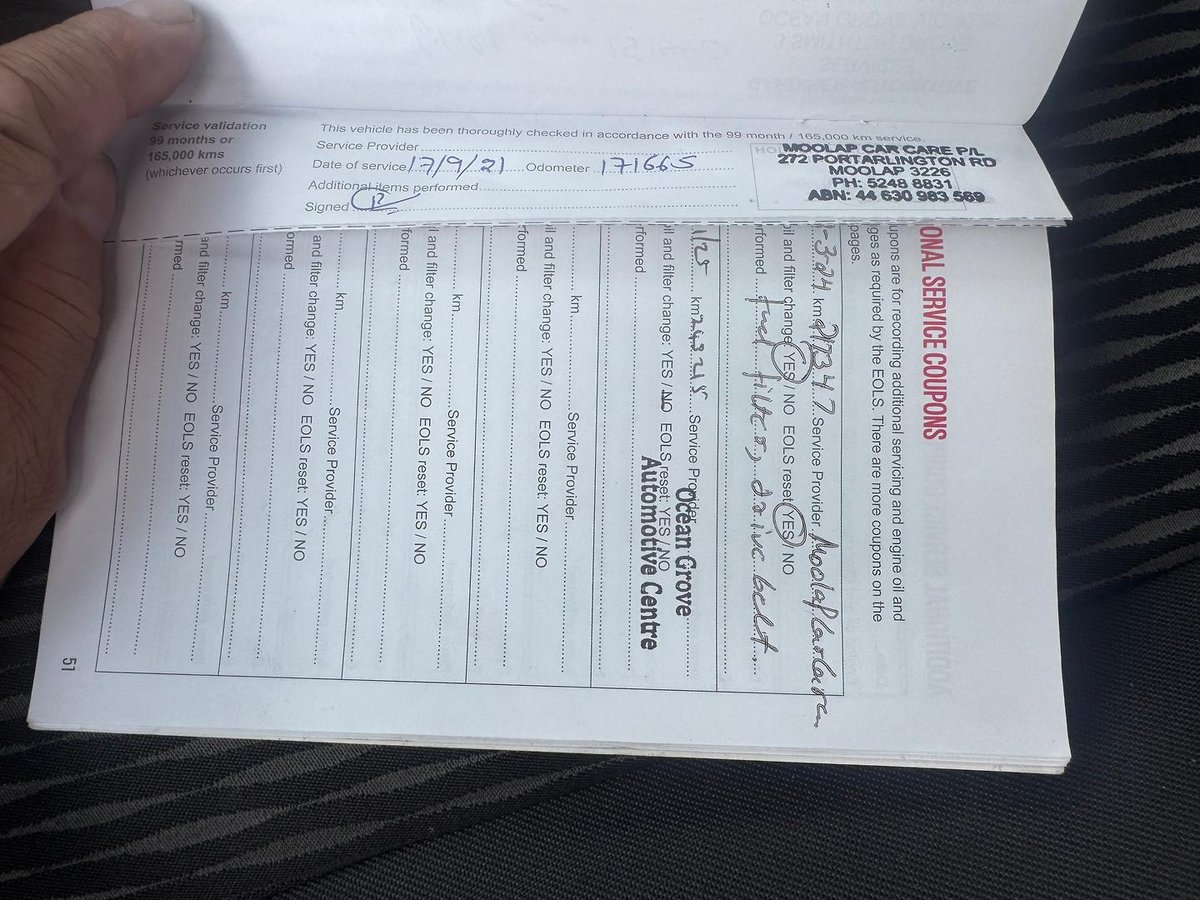 Service validation
99 months or
165,000 kms
(whichever occurs first)
This vehicle has been thoroughly checked in accordance with the 99 month / 165,000 km service.
Service Provider
Date of service 17/9/21 Odometer 171665
Additional items performed
Signed
MOOLAP CAR CARE P/L
272 PORTARLINGTON RD
MOOLAP 3226
PH: 5248 8831
ABN: 44 630 983 569
ONAL SERVICE COUPONS
upons are for recording additional servicing and engine oil and
ges as required by the EOLS. There are more coupons on the
pages.
-3-24 km 217347 Service Provider Moolap Car Care
il and filter change YES / NO EOLS reset YES / NO
rformed fuel filter, drive belt
1/25 km 243245 Service Provider
il and filter change: YES / NO EOLS reset: YES / NO
rformed
Ocean Grove
Automotive Centre
km Service Provider
il and filter change: YES / NO EOLS reset: YES / NO
rformed
km Service Provider
l and filter change: YES / NO EOLS reset: YES / NO
formed
km Service Provider
and filter change: YES / NO EOLS reset: YES / NO
ormed
km Service Provider
and filter change: YES / NO EOLS reset: YES / NO
rmed
51